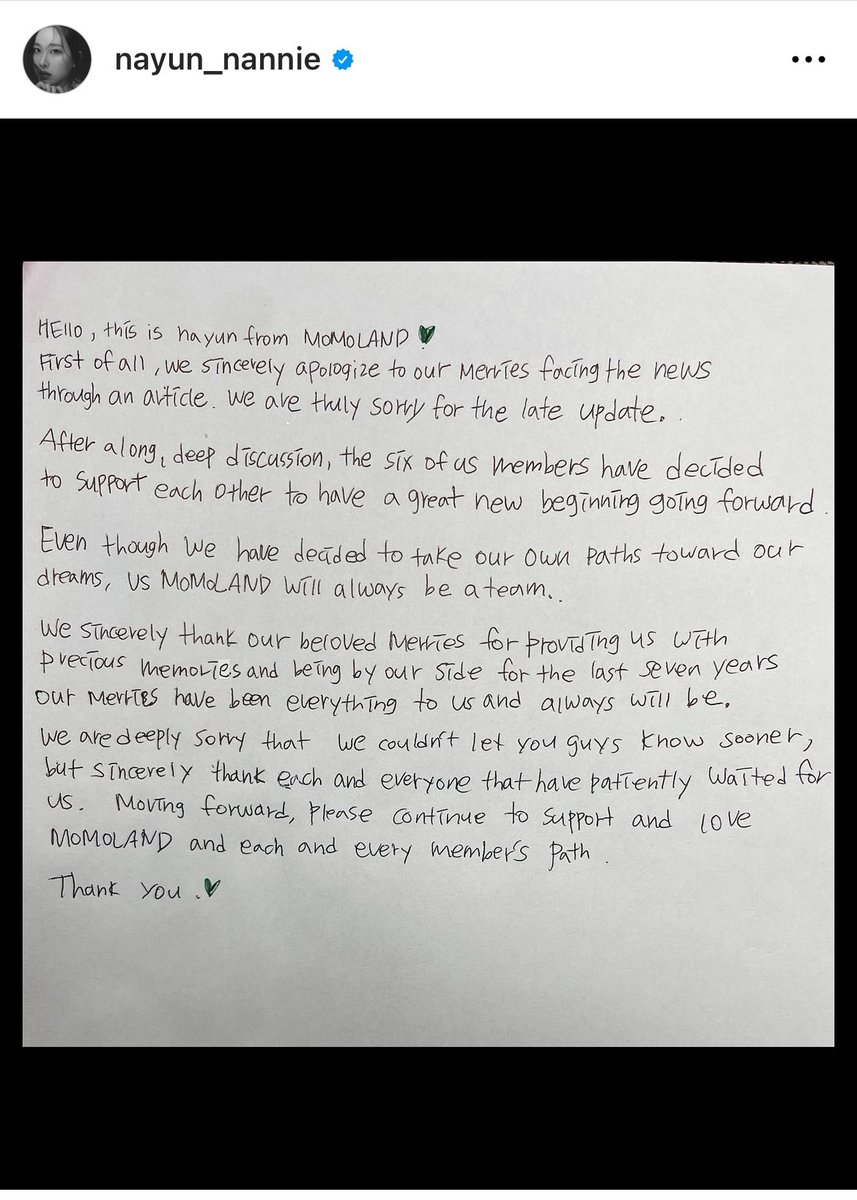 nayun_nannie
HEllo, this is nayun from MOMOLAND
First of all, we sincerely apologize to our Merries facing the news
through an article. We are truly sorry for the late update..
After a long, deep discussion, the six of us members have decided
to support each other to have a great new beginning going forward.
Even though we have decided to take our own paths toward our
dreams, us MOMOLAND will always be a team..
We sincerely thank our beloved Merries for providing us with
precious memories and being by our side for the last seven years
our Merries have been everything to us and always will be.
We are deeply sorry that we couldn't let you guys know sooner,
but sincerely thank each and everyone that have patiently waited for
us. Moving forward, please continue to support and love
MOMOLAND and each and every member's path.
Thank you.